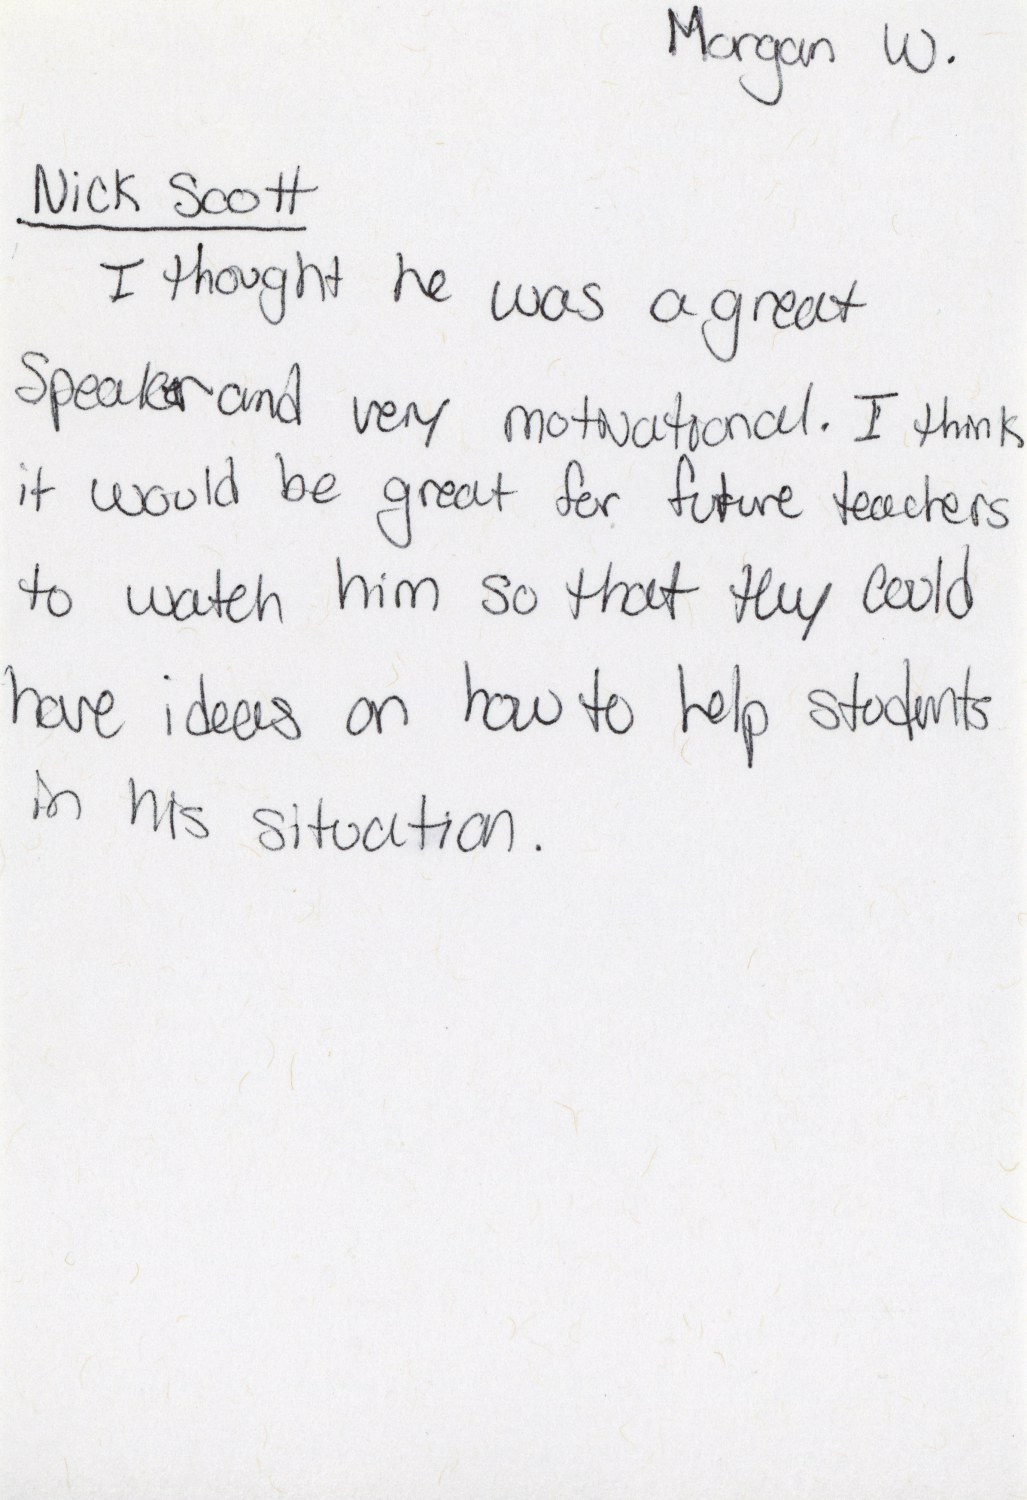 Morgan W.
Nick Scott
I thought he was a great
Speaker and very motivational. I think
it would be great for future teachers
to watch him so that they could
have ideas on how to help students
in his situation.